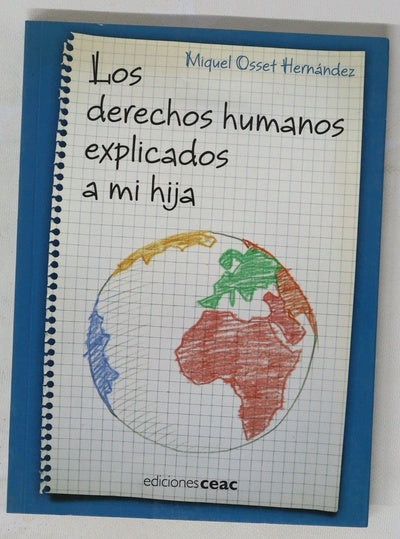 Miquel Osset Hernández
Los
derechos humanos
explicados
a mi hija
edicionesceac